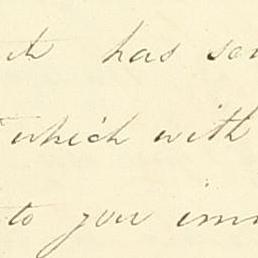 has
which with
to you